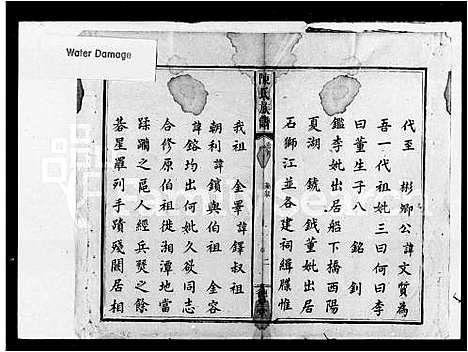 Water Damage
代至 彬鄉公諱文質為
吾一代祖妣三曰何曰李
曰董生子八 銘釗
鑑李妣出居船下橋西陽
夏湖 銃鉞董妣出居
石獅江並各建祠緝牒惟
陳氏族譜
二
我祖 金畢諱鐸叔祖
朝利諱鑌與伯祖 金容
諱鎔均出何妣久欲同志
合修原伯祖徙湘潭地當
蹂躪之區人經兵燹之餘
碁星羅列手蹟殘闕居相